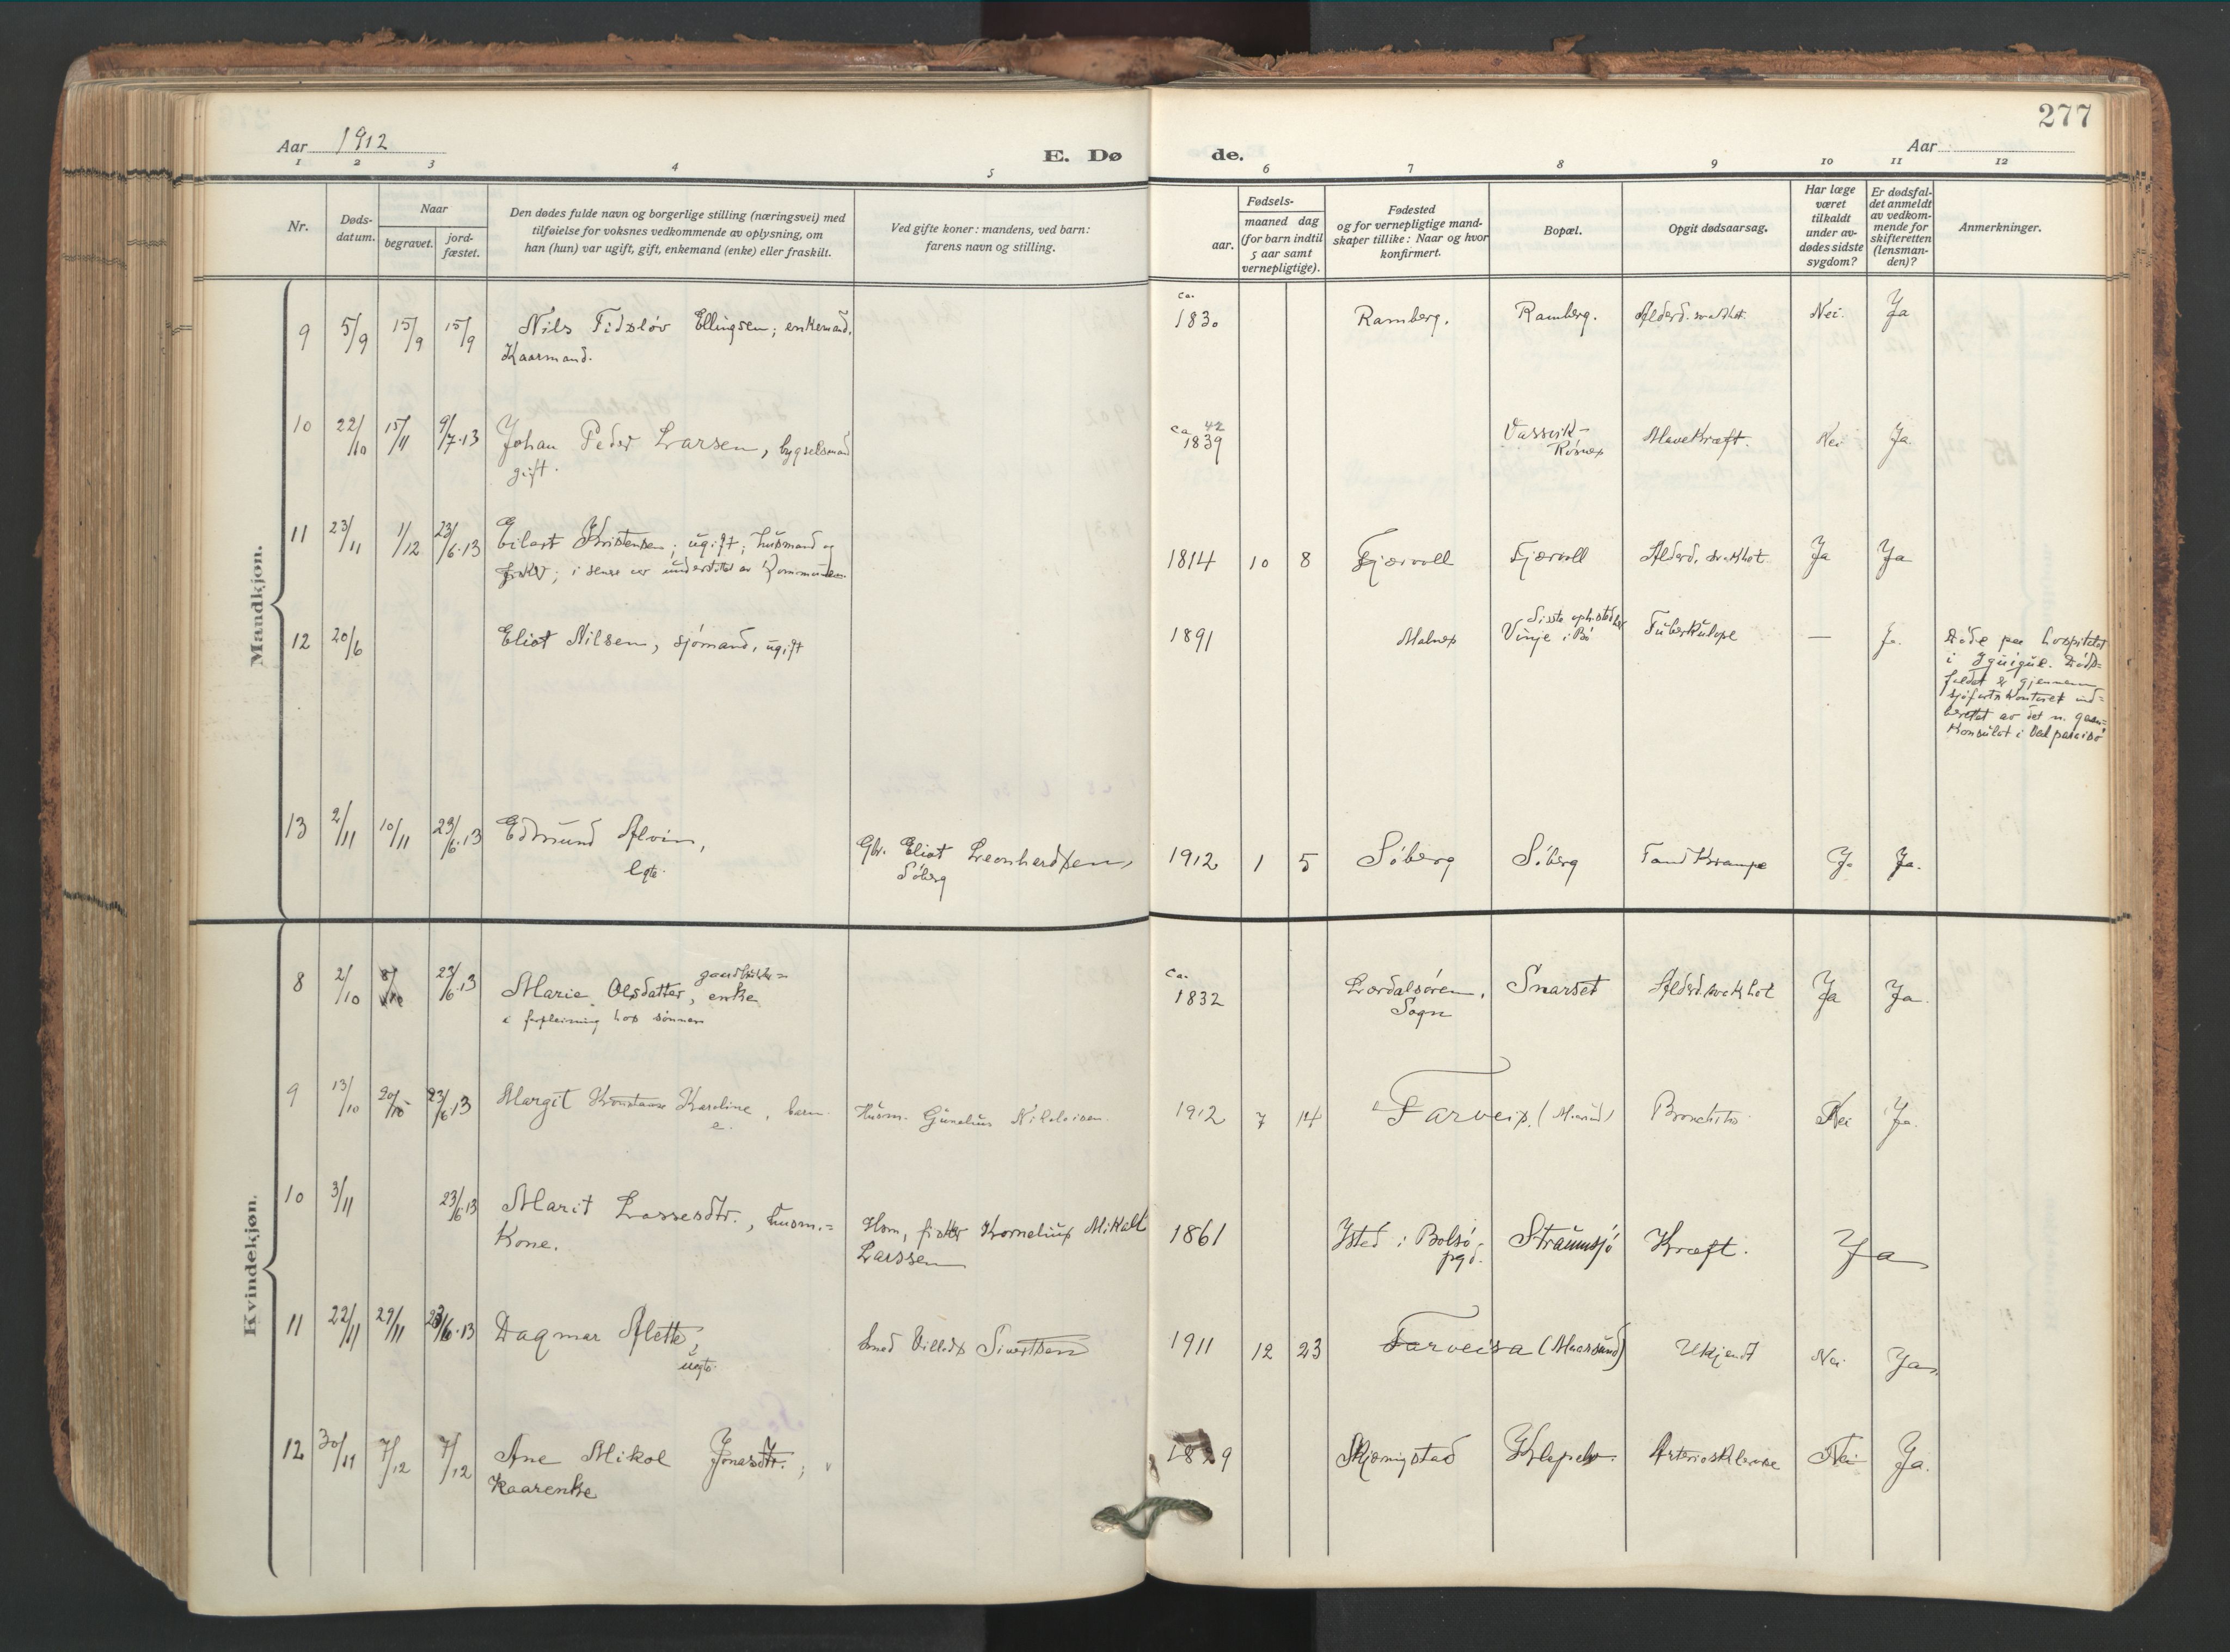 277
Aar 1912
E. Dø
de.
Aar
1 2 3 4 5 6 7 8 9 10 11 12
Nr.
Døds-
datum.
Naar
begravet.
jord-
fæstet.
Den dødes fulde navn og borgerlige stilling (næringsvei) med
tilføielse for voksnes vedkommende av oplysning, om
han (hun) var ugift, gift, enkemand (enke) eller fraskilt.
Ved gifte koner: mandens, ved barn:
farens navn og stilling.
Fødsels-
aar.
maaned dag
(for barn indtil
5 aar samt
vernepligtige).
Fødested
og for vernepligtige mand-
skaper tillike: Naar og hvor
konfirmert.
Bopæl.
Opgit dødsaarsag.
Har læge
været
tilkaldt
under av-
dødes sidste
sygdom?
Er dødsfal-
det anmeldt
av vedkom-
mende for
skifteretten
(lensman-
den)?
Anmerkninger.
Mandkjøn.
9 5/9 15/9 15/9 Nils Fidsløv Ellingsen; enkemand. ca. 1830 Ramberg. Ramberg. Alderd. svakhet. Nei. Ja
Kaarmand.
10 22/10 15/11 9/7.13 Johan Peder Larsen, bygselsmand ca. 42 1839 Vassvik- Mavekræft. Nei Ja.
gift. Røsnes
11 23/11 1/12 23/6.13 Eilart Kristensen; ugift; husmand og 1814 10 8 Fjærvoll Fjærvoll Alderd. svakhet. Ja Ja
fisker; i senere aar understøttet av Kommunen.
12 20/6 Eliot Nilsen, sjømand, ugift 1891 Malnes Sidste opholdssted her Vinje i Bø Tuberkulose — Ja.
Døde paa hospitalet
i Iquique. Døds-
faldet er gjennem
sjøfartskontoret ind-
berettet av det n. gen.
Konsulat i Valparaiso
13 2/11 10/11 23/6.13 Edmund Alvin, Gbr. Eliot Leonhardsen, 1912 1 5 Søberg Søberg Tandkrampe Ja Ja.
egte. Søberg
Kvindekjøn.
8 2/10 8/10 23/6.13 Marie Olsdatter, gaardbruker= enke ca. 1832 Lærdalsøren, Snarset Alderd. svakhet Ja Ja.
i forpleining hos sønnen Sogn
9 13/10 20/10 23/6.13 Margit Konstanse Karoline, barn Husm. Gunelius Nikolaisen 1912 7 14 Farveis. Bronchitis Nei Ja.
e.
10 3/11 23/6.13 Marit Lassesdtr., husm.= Hsm, fisker Kornelius Mikal 1861 Isted i Bolsø Straumsjø Kræft. Ja
Kone. Larssen pgd.
11 22/11 29/11 23/6.13 Dagmar Alette, Smed Villads Sivertsen 1911 12 23 Farveisa (Maarsund) Ukjendt Nei Ja.
uegte.
12 30/11 7/12 7/12 Ane Mikol Jonasdtr.; 1829 Skjærnigstad Klepels. Arteriosklerose Nei Ja.
Kaarenke